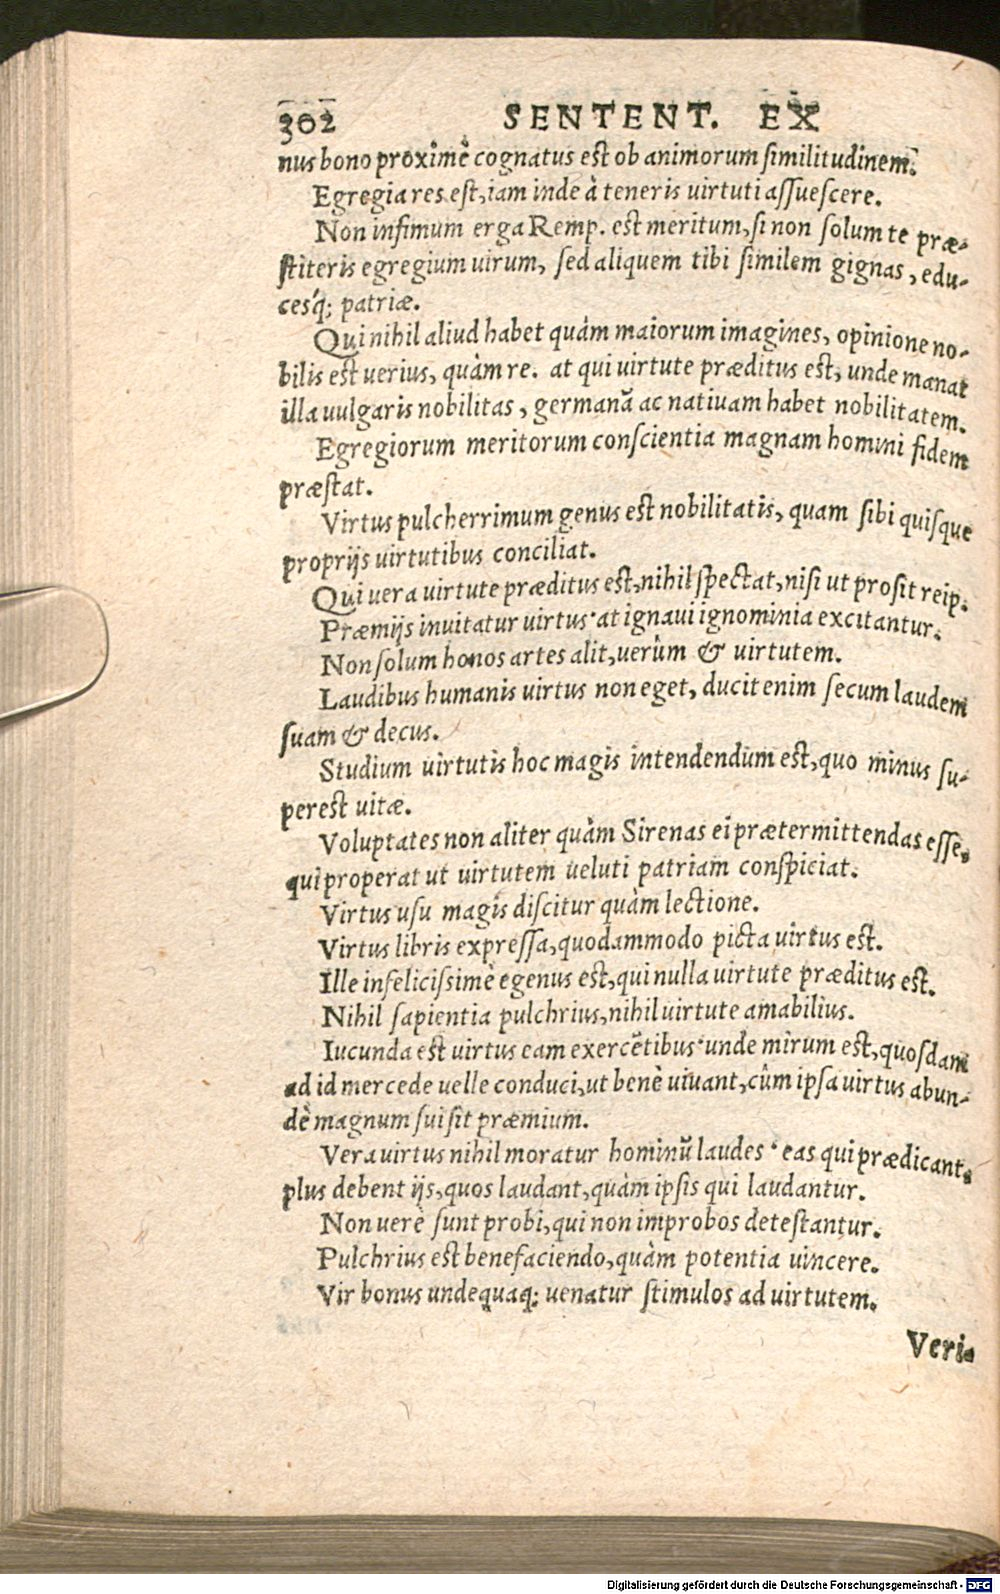 302 SENTENT. EX
nus bono proximè cognatus est ob animorum similitudinem.
Egregia res est, iam inde à teneris uirtuti assuescere.
Non infimum erga Remp. est meritum, si non solum te præ-
stiteris egregium uirum, sed aliquem tibi similem gignas, edu-
cesq́; patriæ.
Qui nihil aliud habet quàm maiorum imagines, opinione no-
bilis est uerius, quàm re. at qui uirtute præditus est, unde manat
illa uulgaris nobilitas, germanā ac natiuam habet nobilitatem.
Egregiorum meritorum conscientia magnam homini fidem
præstat.
Virtus pulcherrimum genus est nobilitatis, quam sibi quisque
proprijs uirtutibus conciliat.
Qui uera uirtute præditus est, nihil spectat, nisi ut prosit reip.
Præmijs inuitatur uirtus· at ignaui ignominia excitantur.
Non solum honos artes alit, uerùm & uirtutem.
Laudibus humanis uirtus non eget, ducit enim secum laudem
suam & decus.
Studium uirtutis hoc magis intendendum est, quo minus su-
perest uitæ.
Voluptates non aliter quàm Sirenas ei prætermittendas esse,
qui properat ut uirtutem ueluti patriam conspiciat.
Virtus usu magis discitur quàm lectione.
Virtus libris expressa, quodammodo picta uirtus est.
Ille infelicissimè egenus est, qui nulla uirtute præditus est.
Nihil sapientia pulchrius, nihil uirtute amabilius.
Iucunda est uirtus eam exercētibus· unde mirum est, quosdam
ad id mercede uelle conduci, ut benè uiuant, cùm ipsa uirtus abun-
dè magnum sui sit præmium.
Vera uirtus nihil moratur hominū laudes· eas qui prædicant,
plus debent ijs, quos laudant, quàm ipsis qui laudantur.
Non uerè sunt probi, qui non improbos detestantur.
Pulchrius est benefaciendo, quàm potentia uincere.
Vir bonus undequaq; uenatur stimulos ad uirtutem.
Veri-
Digitalisierung gefördert durch die Deutsche Forschungsgemeinschaft - DFG